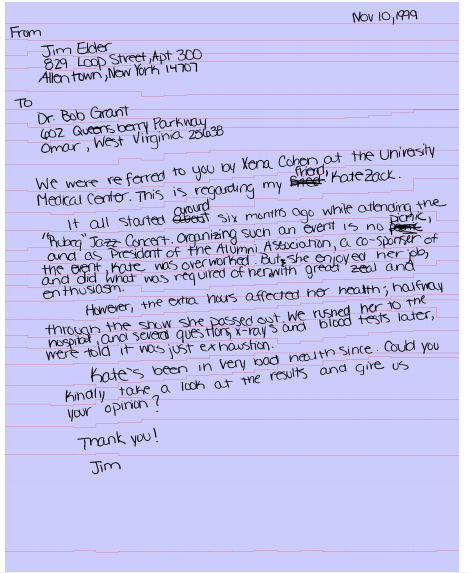 Nov 10, 1999
From
Jim Elder
829 Loop Street, Apt 300
Allentown, New York 14707
To
Dr. Bob Grant
602 Queensberry Parkway
Omar, West Virginia 25638
We were referred to you by Xena Cohen at the University
Medical Center. This is regarding my friend, Kate Zack.
It all started around six months ago while attending the
"Rubeq" Jazz Concert. Organizing such an event is no picnic,
and as President of the Alumni Association, a co-sponsor of
the event, Kate was overworked. But she enjoyed her job,
and did what was required of her with great zeal and
enthusiasm.
However, the extra hours affected her health; halfway
through the show she passed out. We rushed her to the
hospital, and several questions, x-rays and blood tests later,
were told it was just exhaustion.
Kate's been in very bad health since. Could you
kindly take a look at the results and give us
your opinion?
Thank you!
Jim